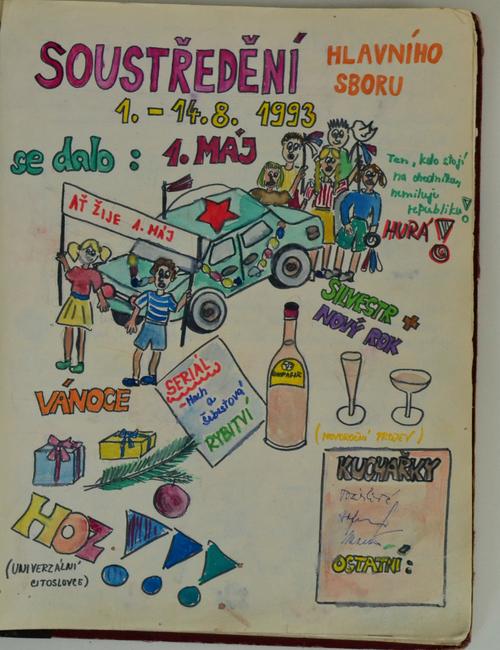 SOUSTŘEDĚNÍ
HLAVNÍHO
SBORU
1. - 14.8. 1993
se dalo :
1. MÁJ
Ten, kdo stojí
na chodníku,
nemiluje
republiku!
HURÁ!
AŤ ŽIJE 1. MÁJ
SILVESTR +
NOVÝ ROK
VÁNOCE
SERIÁL
- Mach
a
Šebestová
RYBITVÍ
(NOVOROČNÍ PROJEV)
HOZ
(UNIVERZÁLNÍ
CITOSLOVCE)
KUCHAŘKY
OSTATNÍ :